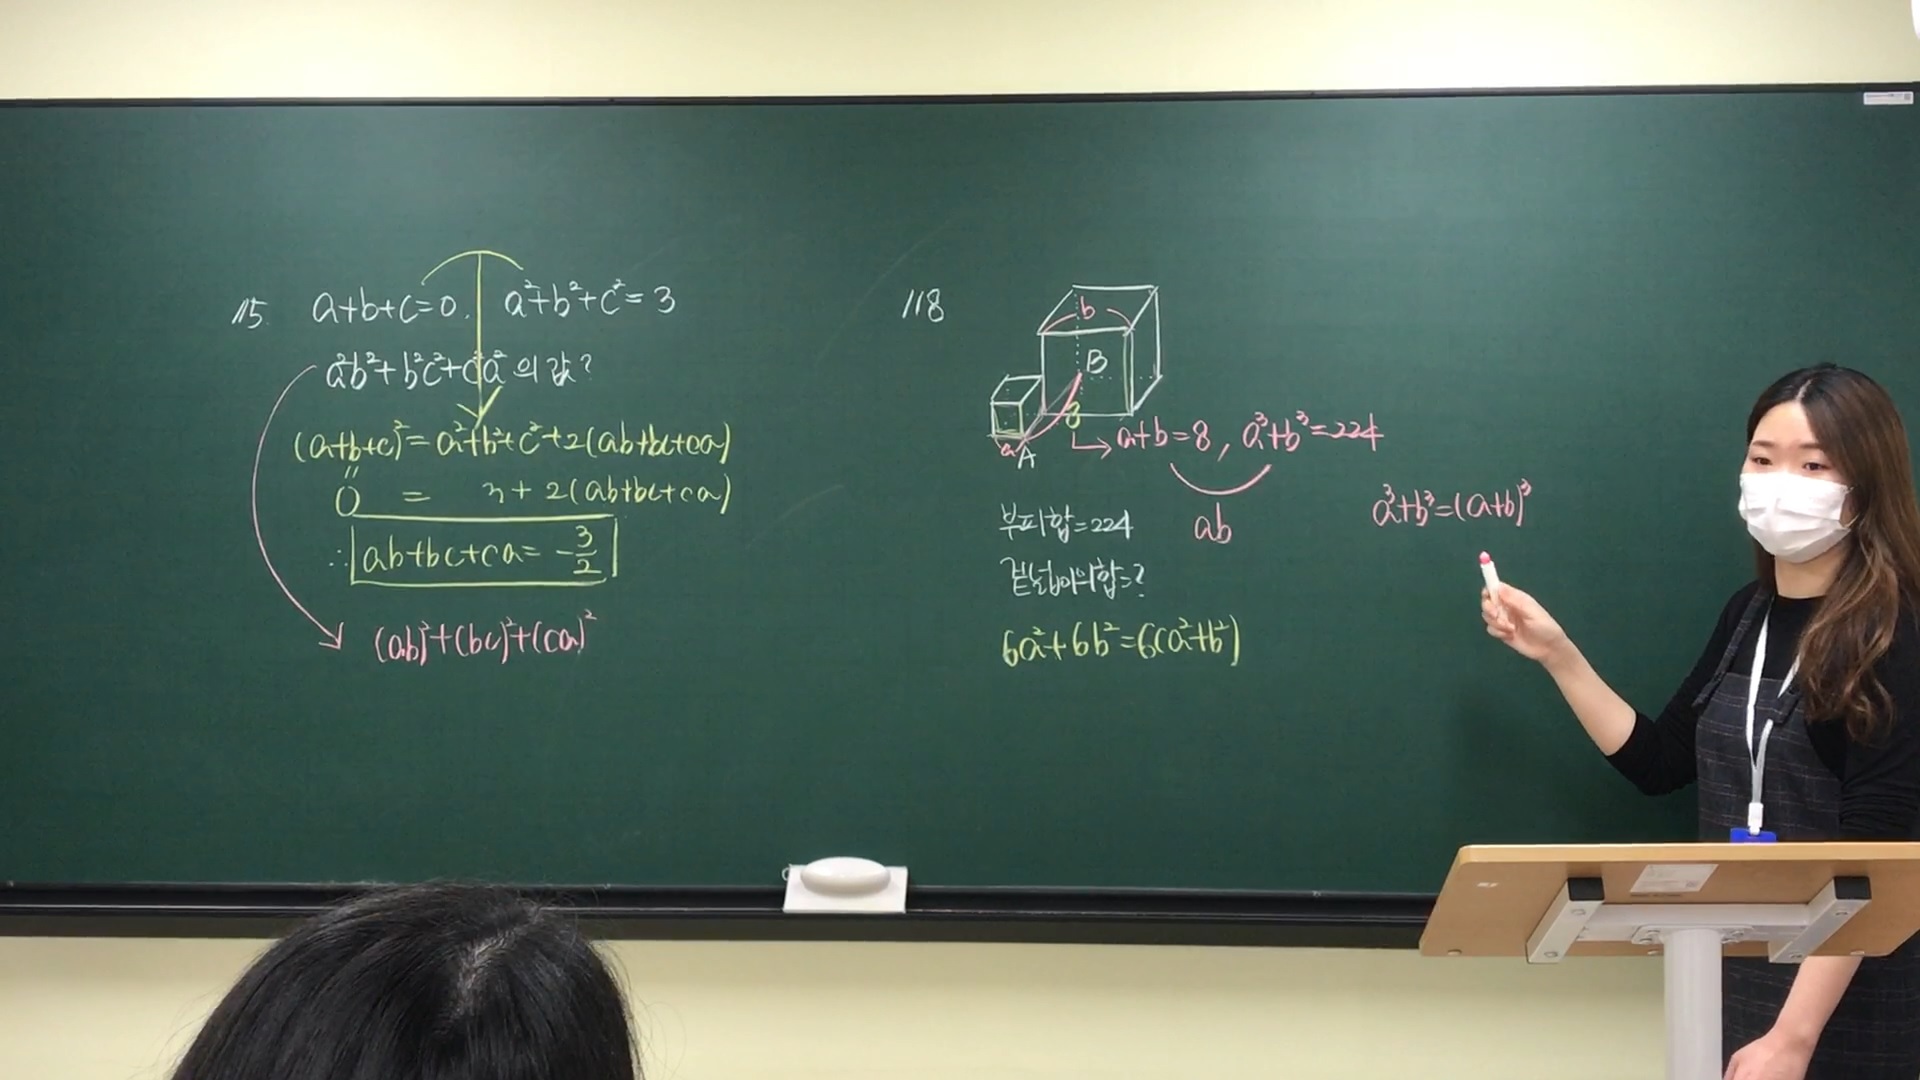 115. a+b+c=0. a²+b²+c²=3
a²b²+b²c²+c²a² 의 값?
(a+b+c)²=a²+b²+c²+2(ab+bc+ca)
0 = 3+2(ab+bc+ca)
∴ ab+bc+ca=-3/2
(ab)²+(bc)²+(ca)²
118
b
B
8
a A
a+b=8, a³+b³=224
ab
부피합=224
겉넓이의합=?
6a²+6b²=6(a²+b²)
a³+b³=(a+b)³